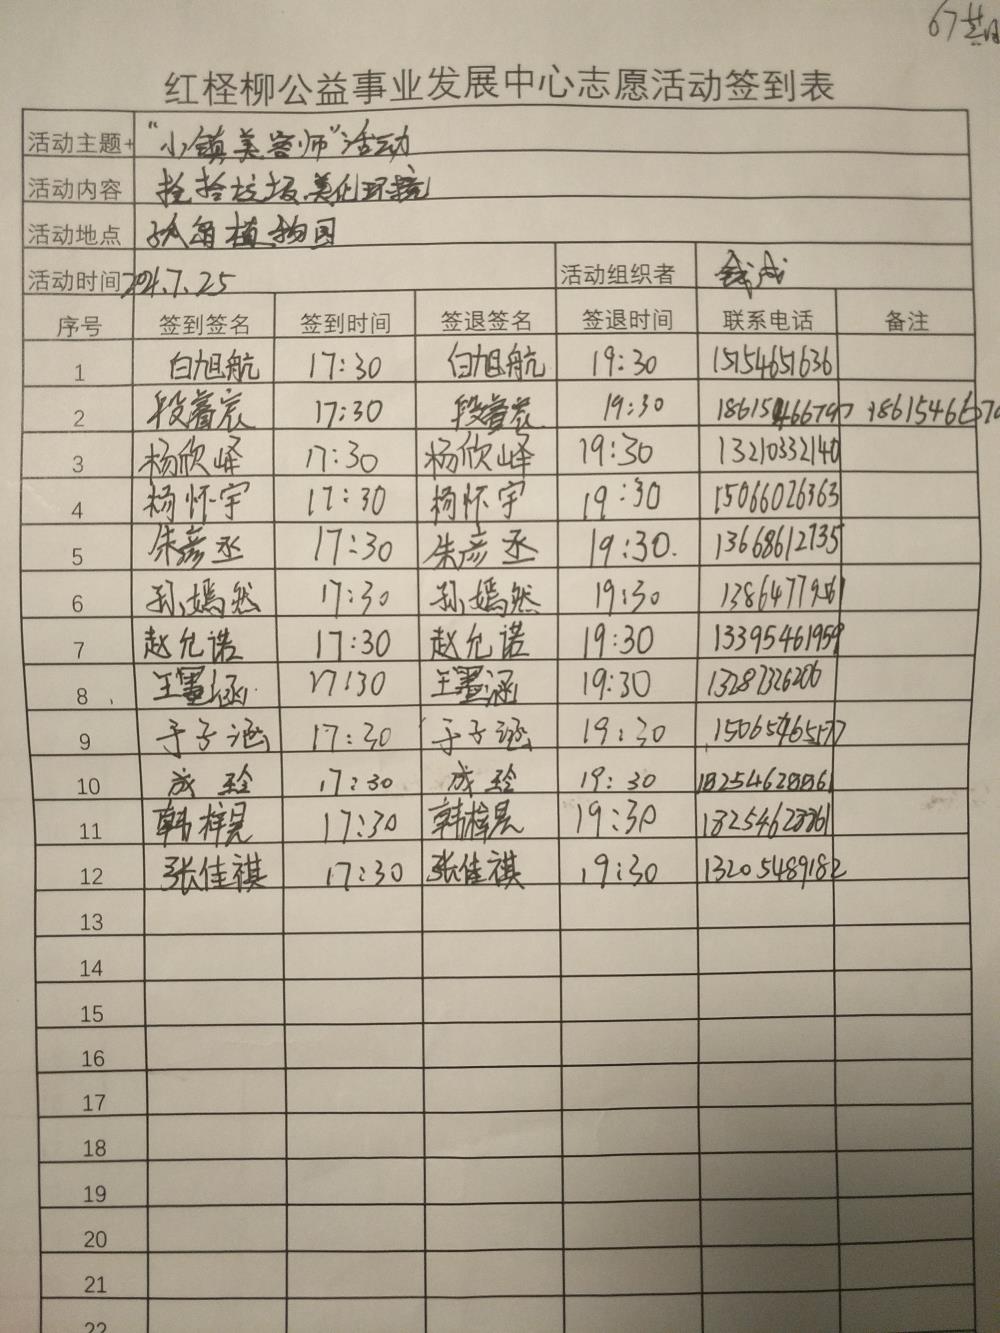 67
红柽柳公益事业发展中心志愿活动签到表
活动主题 "小镇美容师"活动
活动内容 捡拾垃圾美化环境
活动地点 孤岛植物园
活动时间 2021.7.25 活动组织者
序号 签到签名 签到时间 签退签名 签退时间 联系电话 备注
1 白旭航 17:30 白旭航 19:30 15154651636
2 段睿宸 17:30 段睿宸 19:30
3 杨欣峄 17:30 杨欣峄 19:30 13210332140
4 杨怀宇 17:30 杨怀宇 19:30 15066026363
5 朱彦丞 17:30 朱彦丞 19:30. 13668612735
6 孙嫣然 17:30 孙嫣然 19:30
7 赵允诺 17:30 赵允诺 19:30 13395461959
8 王墨涵 17:30 王墨涵 19:30 13287326206
9 于子涵 17:30 于子涵 19:30
10 成 17:30 成 19:30
11 韩梓晨 17:30 韩梓晨 19:30
12 张佳祺 17:30 张佳祺 19:30 13205489182
13
14
15
16
17
18
19
20
21
22